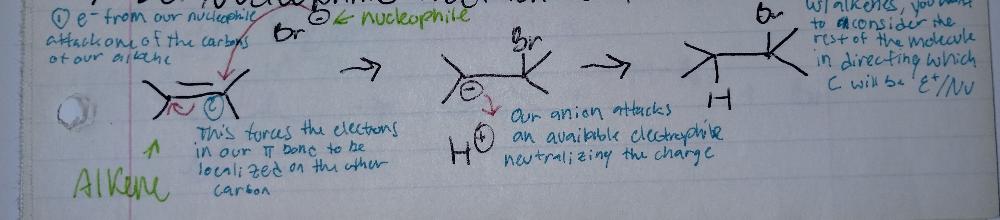 ① e⁻ from our nucleophile
attack one of the carbons
of our alkene
Br ⊖ ← nucleophile
This forces the electrons
in our π bond to be
localized on the other
carbon
Alkene
Br
⊖
H⊕
Our anion attacks
an available electrophile
neutralizing the charge
Br
H
w/ alkenes, you
to consider the
rest of the molecule
in directing which
C will be E⁺/Nu